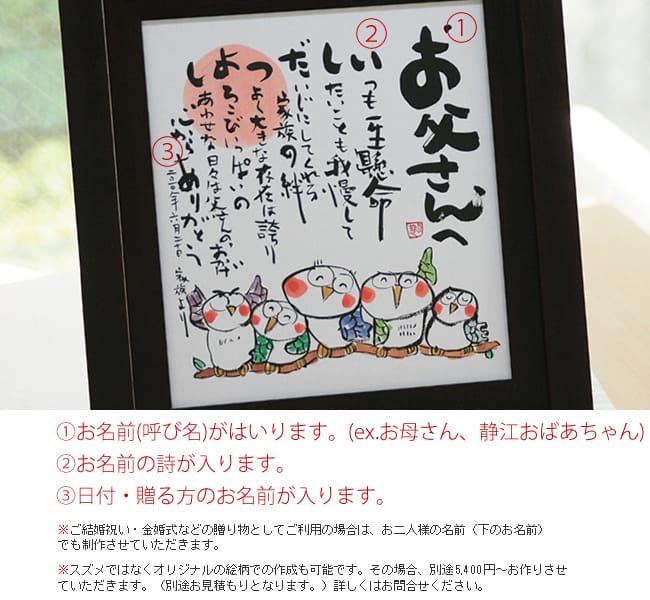 ①
お父さんへ
②
いつも一生懸命
したいことも我慢して
だいじにしてくれる
家族の絆
つよく大きな存在は誇り
よろこびいっぱいの
しあわせな日々は父さんのおかげ
③
心からありがとう
年六月 家族より
①お名前(呼び名)がはいります。(ex.お母さん、静江おばあちゃん)
②お名前の詩が入ります。
③日付・贈る方のお名前が入ります。
※ご結婚祝い・金婚式などの贈り物としてご利用の場合は、お二人様の名前（下のお名前）
でも制作させていただきます。
※スズメではなくオリジナルの絵柄での作成も可能です。その場合、別途5,400円～お作りさせ
ていただきます。（別途お見積もりとなります。）詳しくはお問合せください。